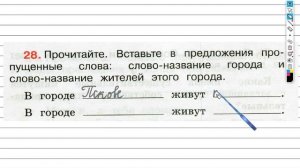 28. Прочитайте. Вставьте в предложения про-
пущенные слова: слово-название города и
слово-название жителей этого города.
В городе Пскове живут
В городе живут